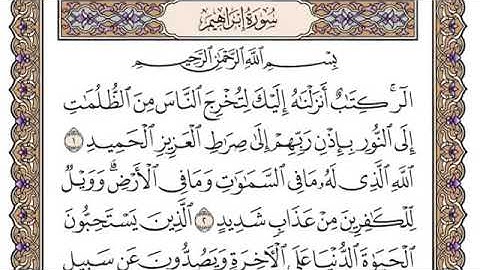 سُورَةُ إِبْرَاهِيم
بِسْمِ ٱللَّهِ ٱلرَّحْمَٰنِ ٱلرَّحِيمِ
الٓرۚ كِتَٰبٌ أَنزَلْنَٰهُ إِلَيْكَ لِتُخْرِجَ ٱلنَّاسَ مِنَ ٱلظُّلُمَٰتِ
إِلَى ٱلنُّورِ بِإِذْنِ رَبِّهِمْ إِلَىٰ صِرَٰطِ ٱلْعَزِيزِ ٱلْحَمِيدِ ١
ٱللَّهِ ٱلَّذِى لَهُۥ مَا فِى ٱلسَّمَٰوَٰتِ وَمَا فِى ٱلْأَرْضِۗ وَوَيْلٌ
لِّلْكَٰفِرِينَ مِنْ عَذَابٍ شَدِيدٍ ٢ ٱلَّذِينَ يَسْتَحِبُّونَ
ٱلْحَيَوٰةَ ٱلدُّنْيَا عَلَى ٱلْأَخِرَةِ وَيَصُدُّونَ عَن سَبِيلِ